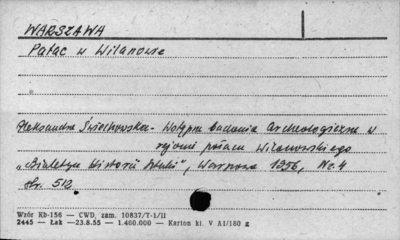 WARSZAWA
Pałac w Wilanowie
Aleksandra Świechowska - Wstępne badania archeologiczne w
rejonie pałacu Wilanowskiego
„Biuletyn Historii Sztuki", Warszawa 1956, Nr. 4
str. 512.
Wzór Kb-156 — CWD, zam. 10837/T-1/II
2445 — Łak —23.8.55 — 1.460.000 — Karton kl. V A1/180 g